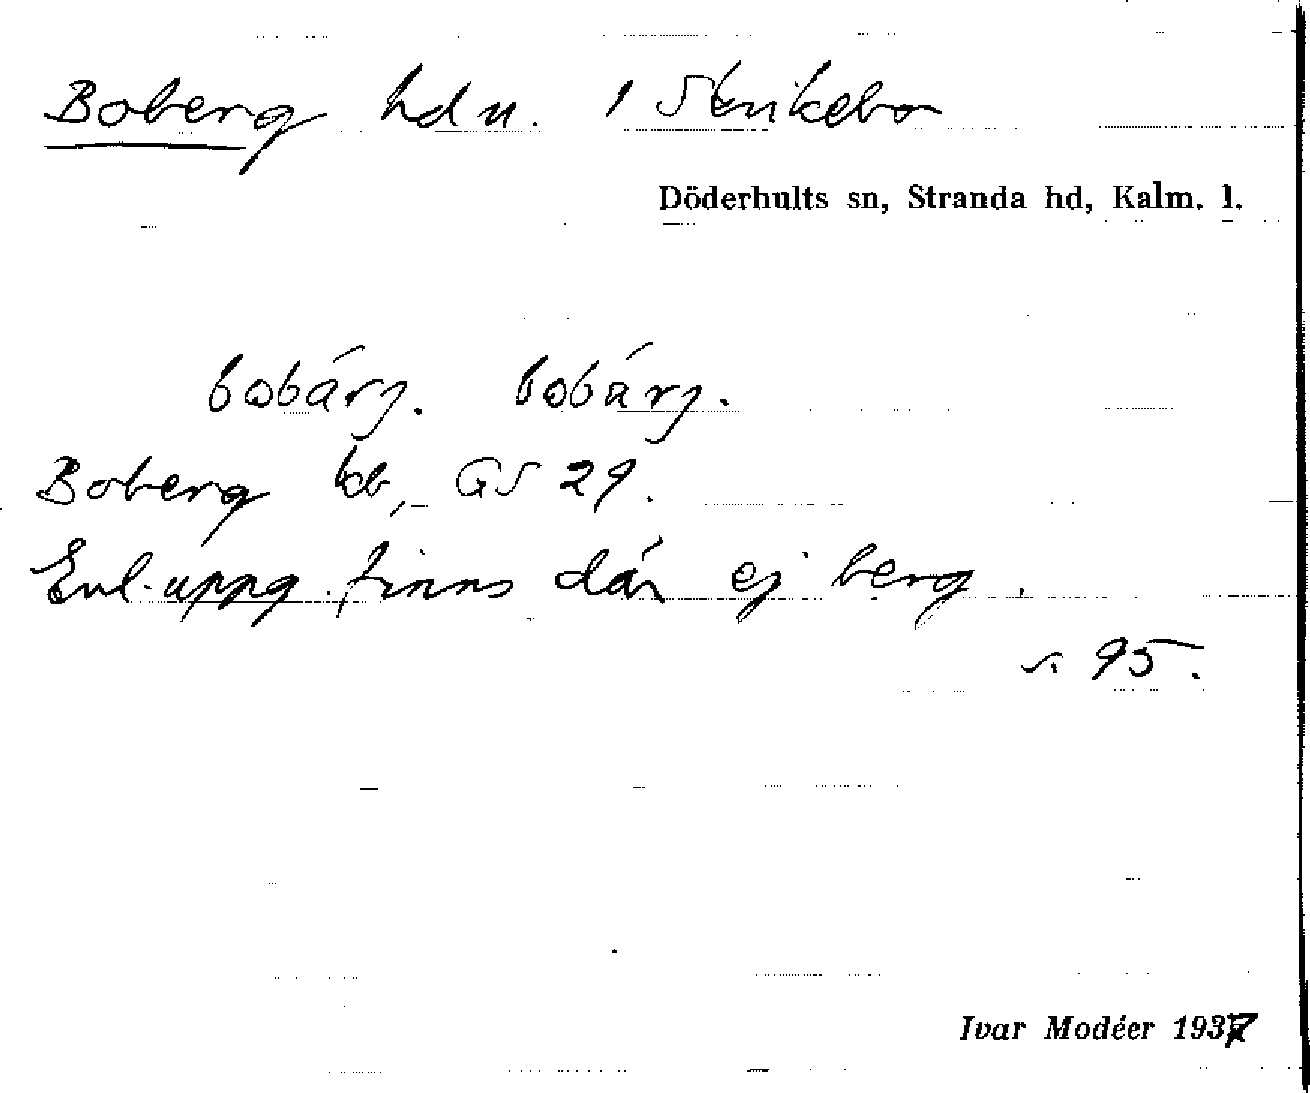 Boberg hdn. i Skrikebo
Döderhults sn, Stranda hd, Kalm. l.
bobárj. bobárj.
Boberg kb, GS 29.
Enl. uppg. finns där ej berg.
s. 95.
Ivar Modéer 1937